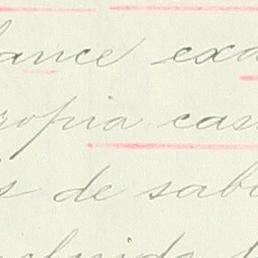 lance exa
ropia cas
s de sab
cluido